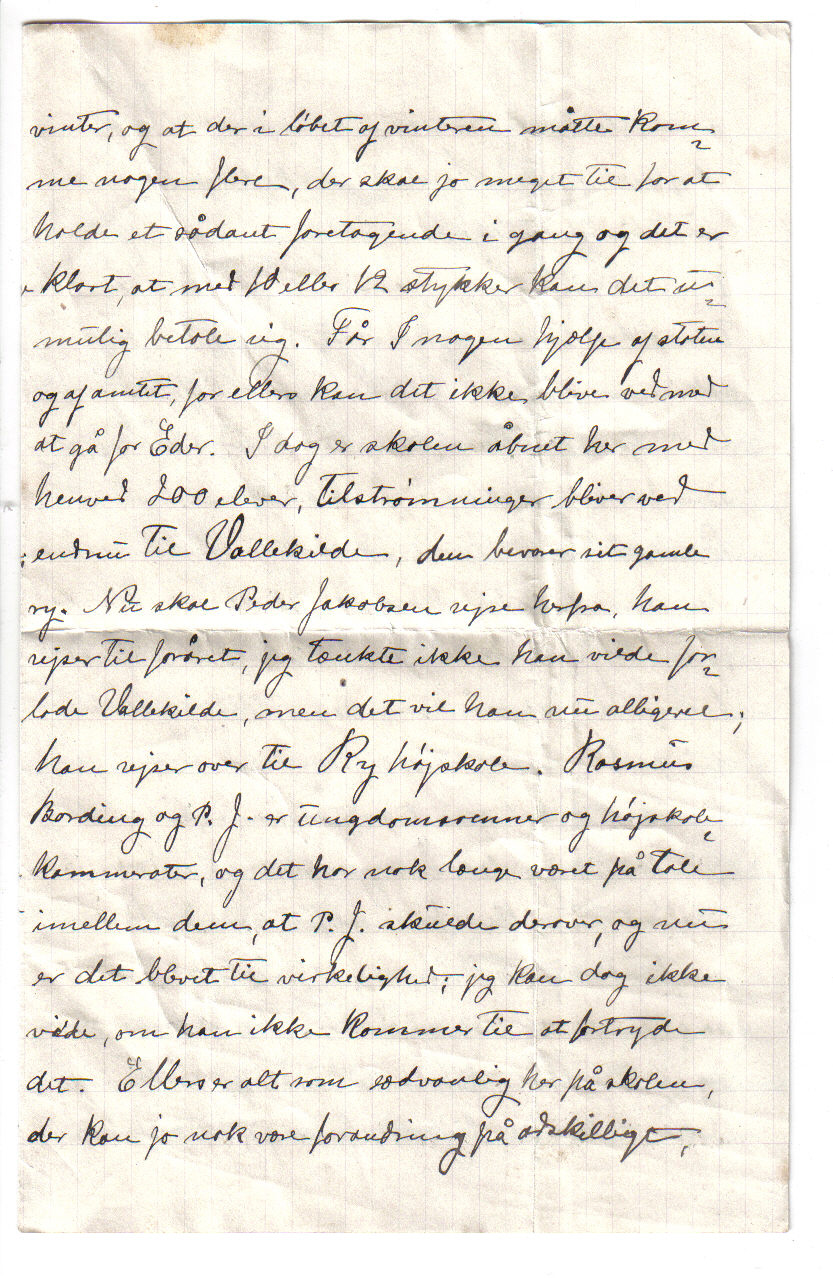 vinter, og at der i løbet af vinteren måtte kom=
me nogen flere, der skal jo meget til for at
holde et sådant foretagende i gang og det er
klart, at med 10 eller 12 stykker kan det u=
mulig betale sig. Får I nogen hjælp af staten
og af amtet, for ellers kan det ikke blive ved med
at gå for Eder. I dag er skolen åbnet her med
henved 200 elever, tilstrømninger bliver ved
endnu til Vallekilde, den bevarer sit gamle
ry. Nu skal Peder Jakobsen rejse herfra, han
rejser til foråret, jeg tænkte ikke han vilde for=
lade Vallekilde, men det vil han nu alligevel;
han rejser over til Ry højskole. Rasmus
Bording og P. J. er ungdomsvenner og højskole=
kammerater, og det har nok længe været på tale
imellem dem, at P. J. skulde derover, og nu
er det blevet til virkelighed; jeg kan dog ikke
vide, om han ikke kommer til at fortryde
det. Ellers er alt som sædvanlig her på skolen,
der kan jo nok være forandring på adskilligt,